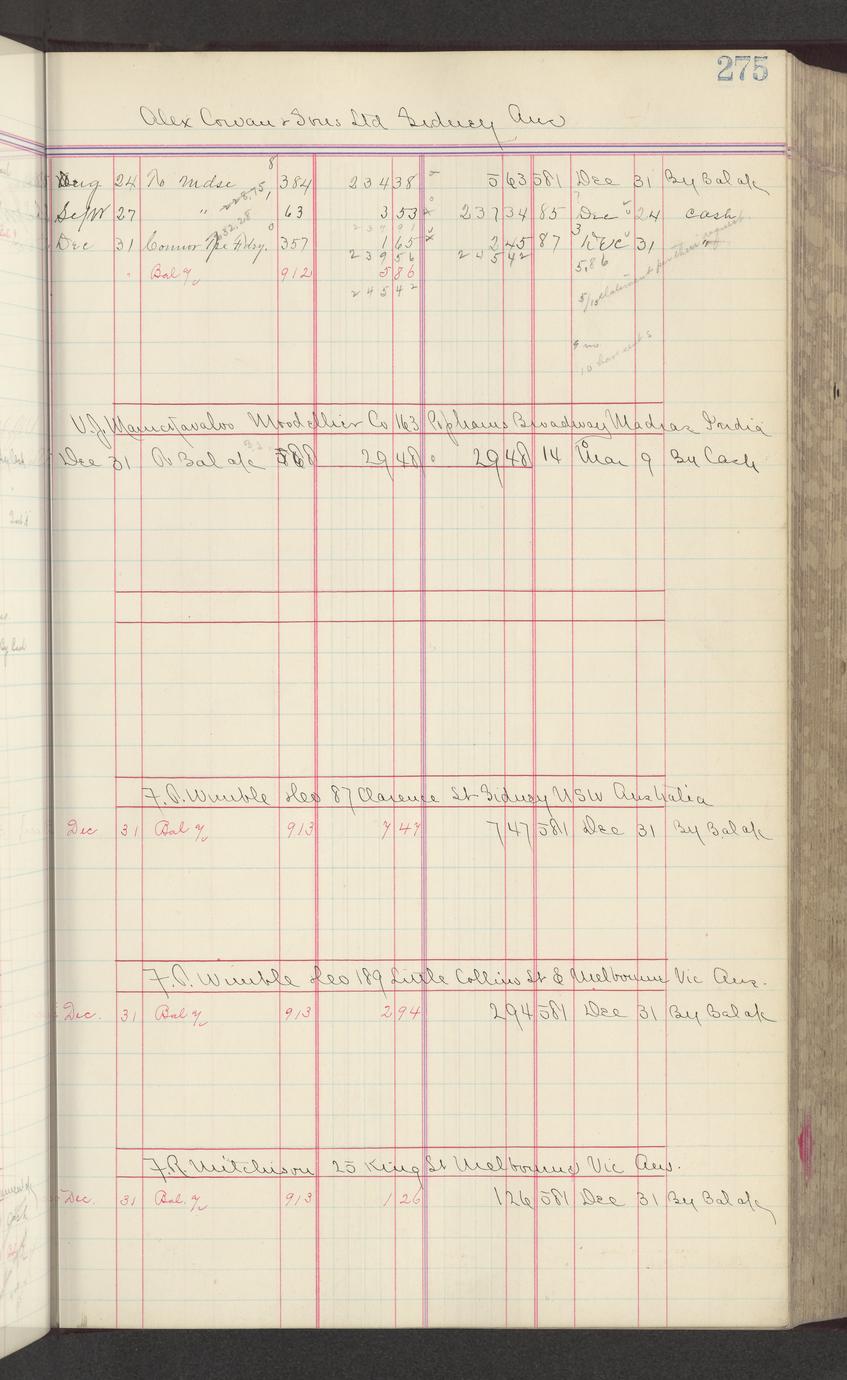 275
Alex Cowan & Sons Ltd Sidney Aus
Aug 24 To Mdse 384 234 38 5 63 581 Dec 31 By Bal a/c
Sept 27 " 63 3 53 237 34 85 Dec 24 Cash
Dec 31 Connor Fdry. 357 1 65 2 45 87 Dec 31 "
239 56 245 42 5.86
" Bal 912 5 86
245 42
V.J. Moodellier Co 163 Pophams Broadway Madras India
Dec 31 To Bal a/c 588 29 48 29 48 14 Mar 9 By Cash
F.T. Wimble & Co 87 Clarence St Sidney NSW Australia
Dec 31 Bal 913 7 47 7 47 581 Dec 31 By Bal a/c
F.T. Wimble & Co 189 Little Collins St E Melbourne Vic Aus.
Dec. 31 Bal 913 2 94 2 94 581 Dec 31 By Bal a/c
F.R. Mitchison 25 King St Melbourne Vic Aus.
Dec. 31 Bal. 913 1 26 1 26 581 Dec 31 By Bal a/c